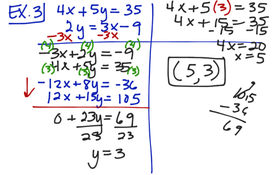 EX. 3
4x + 5y = 35
2y = 3x - 9
-3x -3x
(4) (4) (4)
-3x + 2y = -9
4x + 5y = 35
(3) (3) (3)
-12x + 8y = -36
12x + 15y = 105
0 + 23y = 69
23 23
y = 3
4x + 5(3) = 35
4x + 15 = 35
-15 -15
4x = 20
x = 5
(5, 3)
105
-36
69